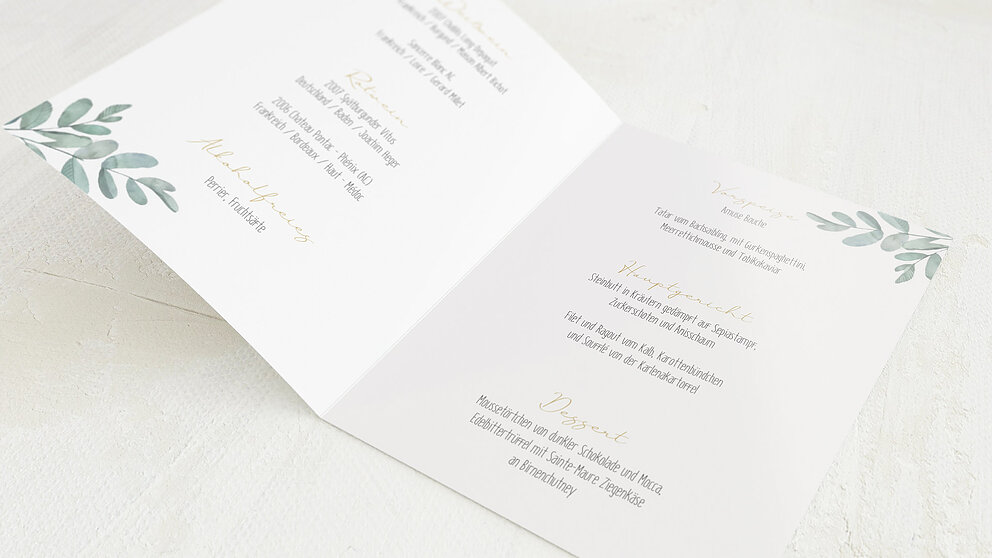 Weißwein
2007 Chablis Long Depaquit
Frankreich / Burgund / Maison Albert Bichot
Sancerre Blanc AC
Frankreich / Loire / Gerard Millet
Rotwein
2007 Spätburgunder Vitus
Deutschland / Baden / Joachim Heger
2006 Chateau Pontac - Phénix (AC)
Frankreich / Bordeaux / Haut - Médoc
Alkoholfreies
Perrier, Fruchtsäfte
Vorspeise
Amuse Bouche
Tatar vom Bachsaibling, mit Gurkenspaghettini,
Meerrettichmousse und Tobikokaviar
Hauptgericht
Steinbutt in Kräutern gedämpft auf Sepiastampf,
Zuckerschoten und Anisschaum
Filet und Ragout vom Kalb, Karottenbündchen
und Soufflé von der Kartenakartoffel
Dessert
Moussetörtchen von dunkler Schokolade und Mocca,
Edelbittertrüffel mit Sainte-Maure Ziegenkäse
an Birnenchutney